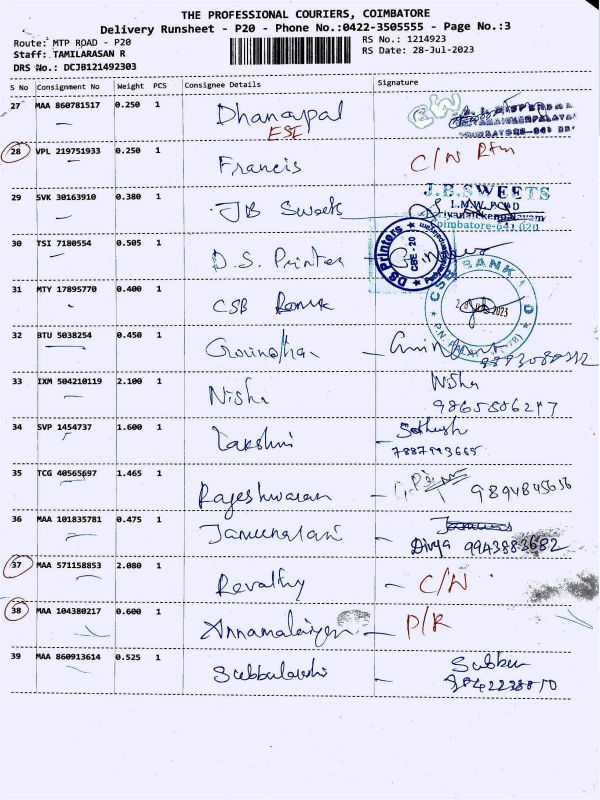 THE PROFESSIONAL COURIERS, COIMBATORE
Delivery Runsheet - P20 - Phone No.:0422-3505555 - Page No.:3
Route: MTP ROAD - P20
RS No.: 1214923
Staff: TAMILARASAN R
RS Date: 28-Jul-2023
DRS No.: DCJB121492303
S No Consignment No Weight PCS Consignee Details Signature
27 MAA 860781517 0.250 1 Dhanapal
ESI
28 VPL 219751933 0.250 1 Francis C/N
29 SVK 30163910 0.380 1 JB Sweets J.B.SWEETS
Coimbatore-641 020
30 TSI 7180554 0.505 1 D.S. Printer DS Printers CBE - 20
31 MTY 17895770 0.400 1 CSB CSB BANK 2023
32 BTU 5038254 0.450 1
33 IXM 504210119 2.100 1 Nisha Nisha
9865806247
34 SVP 1454737 1.600 1 Lakshmi - Sathish
7887993665
35 TCG 40565697 1.465 1 Rajeshwaran - 9894845656
36 MAA 101835781 0.475 1
- Divya 9943883682
37 MAA 571158853 2.080 1 Revathy - C/N
38 MAA 104380217 0.600 1 - P/R
39 MAA 860913614 0.525 1 Subbulakshi